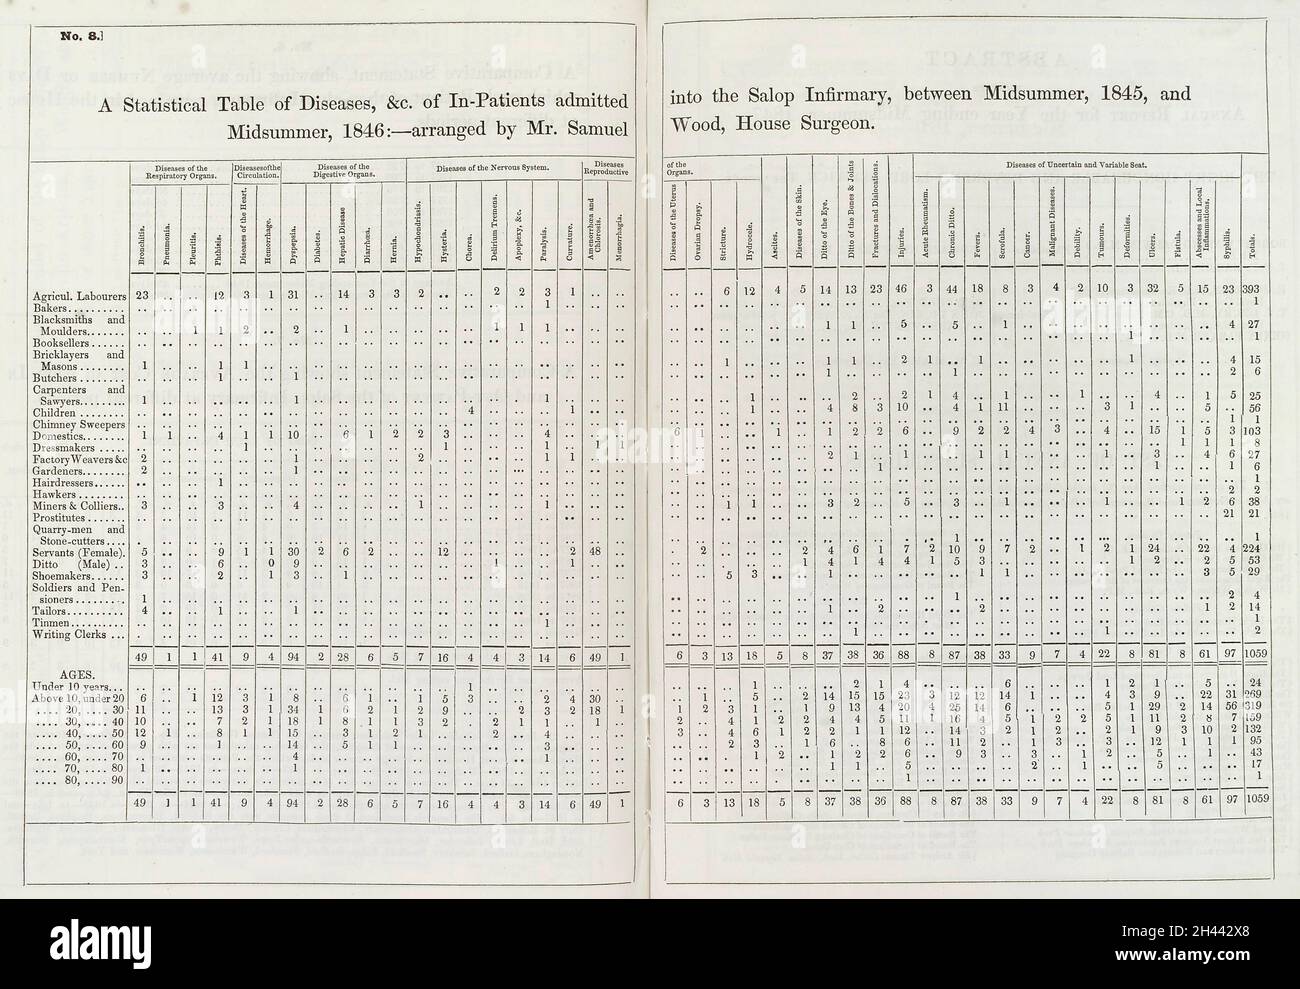 No. 8.]
A Statistical Table of Diseases, &c. of In-Patients admitted into the Salop Infirmary, between Midsummer, 1845, and
Midsummer, 1846:—arranged by Mr. Samuel Wood, House Surgeon.
Diseases of the Respiratory Organs.
Diseases of the Circulation.
Diseases of the Digestive Organs.
Diseases of the Nervous System.
Diseases of the Reproductive Organs.
Diseases of Uncertain and Variable Seat.
Bronchitis. Pneumonia. Pleuritis. Phthisis. Diseases of the Heart. Hemorrhage. Dyspepsia. Diabetes. Hepatic Disease Diarrhœa. Hernia. Hypochondriasis. Hysteria. Chorea. Delirium Tremens. Apoplexy, &c. Paralysis. Curvature. Amenorrhœa and Chlorosis. Menorrhagia.
Diseases of the Uterus Ovarian Dropsy. Stricture. Hydrocele. Ascites. Diseases of the Skin. Ditto of the Eye. Ditto of the Bones & Joints Fractures and Dislocations. Injuries. Acute Rheumatism. Chronic Ditto. Fevers. Scrofula. Cancer. Malignant Diseases. Debility. Tumours. Deformities. Ulcers. Fistula. Abscesses and Local Inflammations. Syphilis. Totals.
Agricul. Labourers 23 .. .. 12 3 1 31 .. 14 3 3 2 .. .. 2 2 3 1 .. .. .. .. 6 12 4 5 14 13 23 46 3 44 18 8 3 4 2 10 3 32 5 15 23 393
Bakers 1 1
Blacksmiths and
Moulders 1 1 2 2 1 1 1 1 1 1 5 5 1 4 27
Booksellers 1 1
Bricklayers and
Masons 1 1 1 1 1 1 2 1 1 1 4 15
Butchers 1 1 1 1 2 6
Carpenters and
Sawyers 1 1 1 1 2 2 1 4 1 1 4 1 5 25
Children 4 1 1 4 8 3 10 4 1 11 3 1 5 56
Chimney Sweepers 1 1
Domestics 1 1 4 1 1 10 6 1 2 2 3 4 6 1 1 1 2 2 6 9 2 2 4 3 4 15 1 5 3 103
Dressmakers 1 1 1 1 1 1 1 1 8
Factory Weavers &c 2 1 2 1 1 2 1 1 1 1 1 3 4 6 27
Gardeners 2 1 1 1 1 6
Hairdressers 1 1
Hawkers 2 2
Miners & Colliers 3 3 4 1 1 1 1 3 2 5 3 1 1 1 2 6 38
Prostitutes 21 21
Quarry-men and
Stone-cutters 1 1
Servants (Female). 5 9 1 1 30 2 6 2 12 2 48 2 2 4 6 1 7 2 10 9 7 2 1 2 1 24 22 4 224
Ditto (Male) 3 6 0 9 1 1 1 4 1 4 4 1 5 3 1 2 2 5 53
Shoemakers 3 2 1 3 1 5 3 1 1 1 3 5 29
Soldiers and Pen-
sioners 1 1 2 4
Tailors 4 1 1 1 2 2 1 2 14
Tinmen 1 1
Writing Clerks 1 1 2
49 1 1 41 9 4 94 2 28 6 5 7 16 4 4 3 14 6 49 1 6 3 13 18 5 8 37 38 36 88 8 87 38 33 9 7 4 22 8 81 8 61 97 1059
AGES.
Under 10 years 1 1 2 1 4 6 1 2 1 5 24
Above 10, under 20 6 1 12 3 1 8 6 1 1 5 3 2 4 30 1 5 2 14 15 15 23 3 12 12 14 1 4 3 9 22 31 269
20, 30 11 13 3 1 34 1 6 2 1 2 9 3 2 18 1 1 2 3 1 1 9 13 4 20 4 25 14 6 5 1 29 2 14 56 319
30, 40 10 7 2 1 18 1 8 1 1 3 2 2 1 1 1 2 4 1 2 2 4 4 5 11 1 16 4 5 1 2 2 5 1 11 2 8 7 159
40, 50 12 1 8 1 1 15 3 1 2 1 2 4 3 4 6 1 2 2 1 1 12 14 3 2 1 2 2 1 9 3 10 2 132
50, 60 9 1 14 5 1 1 3 2 3 1 6 8 6 11 2 1 3 3 12 1 1 1 95
60, 70 4 1 2 1 2 2 6 9 3 3 1 2 5 1 43
70, 80 1 1 1 1 5 2 1 5 17
80, 90 1 1
49 1 1 41 9 4 94 2 28 6 5 7 16 4 4 3 14 6 49 1 6 3 13 18 5 8 37 38 36 88 8 87 38 33 9 7 4 22 8 81 8 61 97 1059
alamy
Image ID: 2H442X8
www.alamy.com